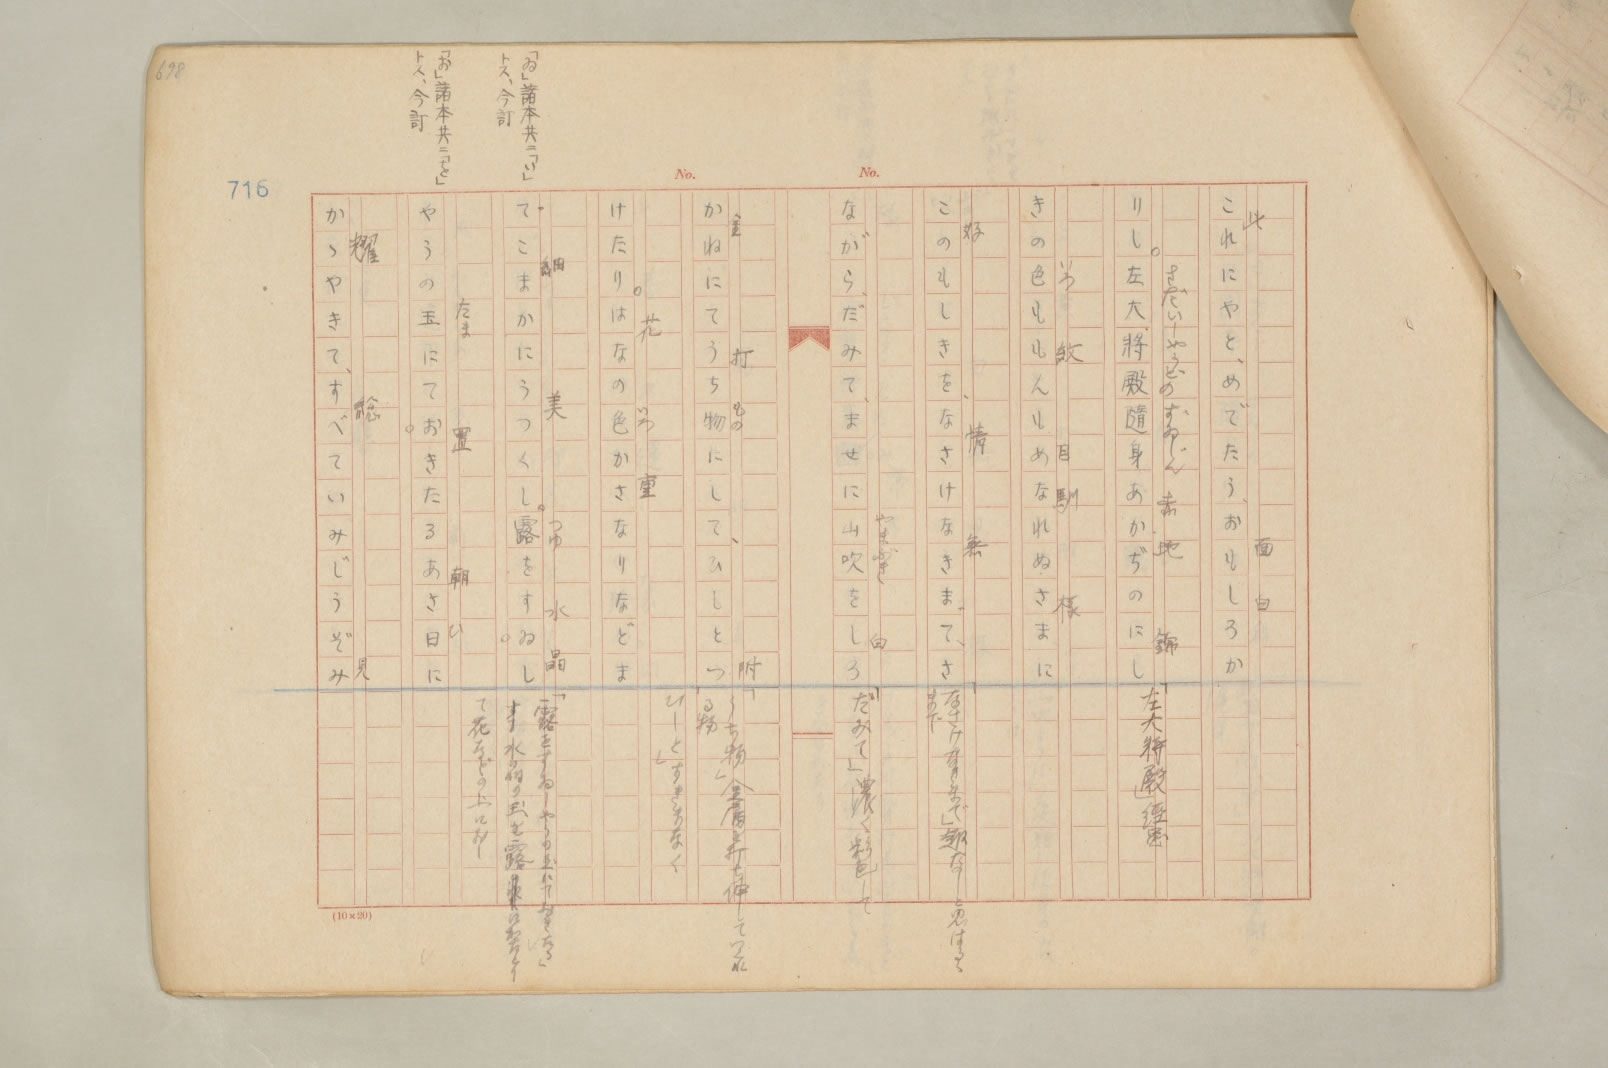 698
716
No.
No.
此　面白
これにやと、めでたう、おもしろか
さだいしやうどのずゐじん　赤地　錦
りし。左大將殿隨身あかぢのにし
いろ　紋　目馴　樣
きの色ももんもめなれぬさまに
好　情　無
このもしきを、なさけなきまで、さ
やまぶき　白
ながら、だみて、ませに山吹をしろ
金　打　もの　附
かねにてうち物にして、ひしとつ
花　いろ　重
けたり。はなの色かさなりなどま
細　美　つゆ　水晶
てこまかにうつくし。露をすゐし
たま　置　朝ひ
やうの玉にておきたるあさ日に
耀　総　見
かゝやきて、すべていみじうぞみ
「ゐ」諸本共ニ「い」
トス、今訂
「お」諸本共ニ「を」
トス、今訂
「左大將殿」
「なさけなきまで」趣なしと思はるる
まで
「だみて」濃く彩色して
「うち物」金屬を打ち伸してつくれ
る物
「ひしと」すきまなく
「露をすゐしやうの玉にておきたる」
て花などの上におし
(10×20)